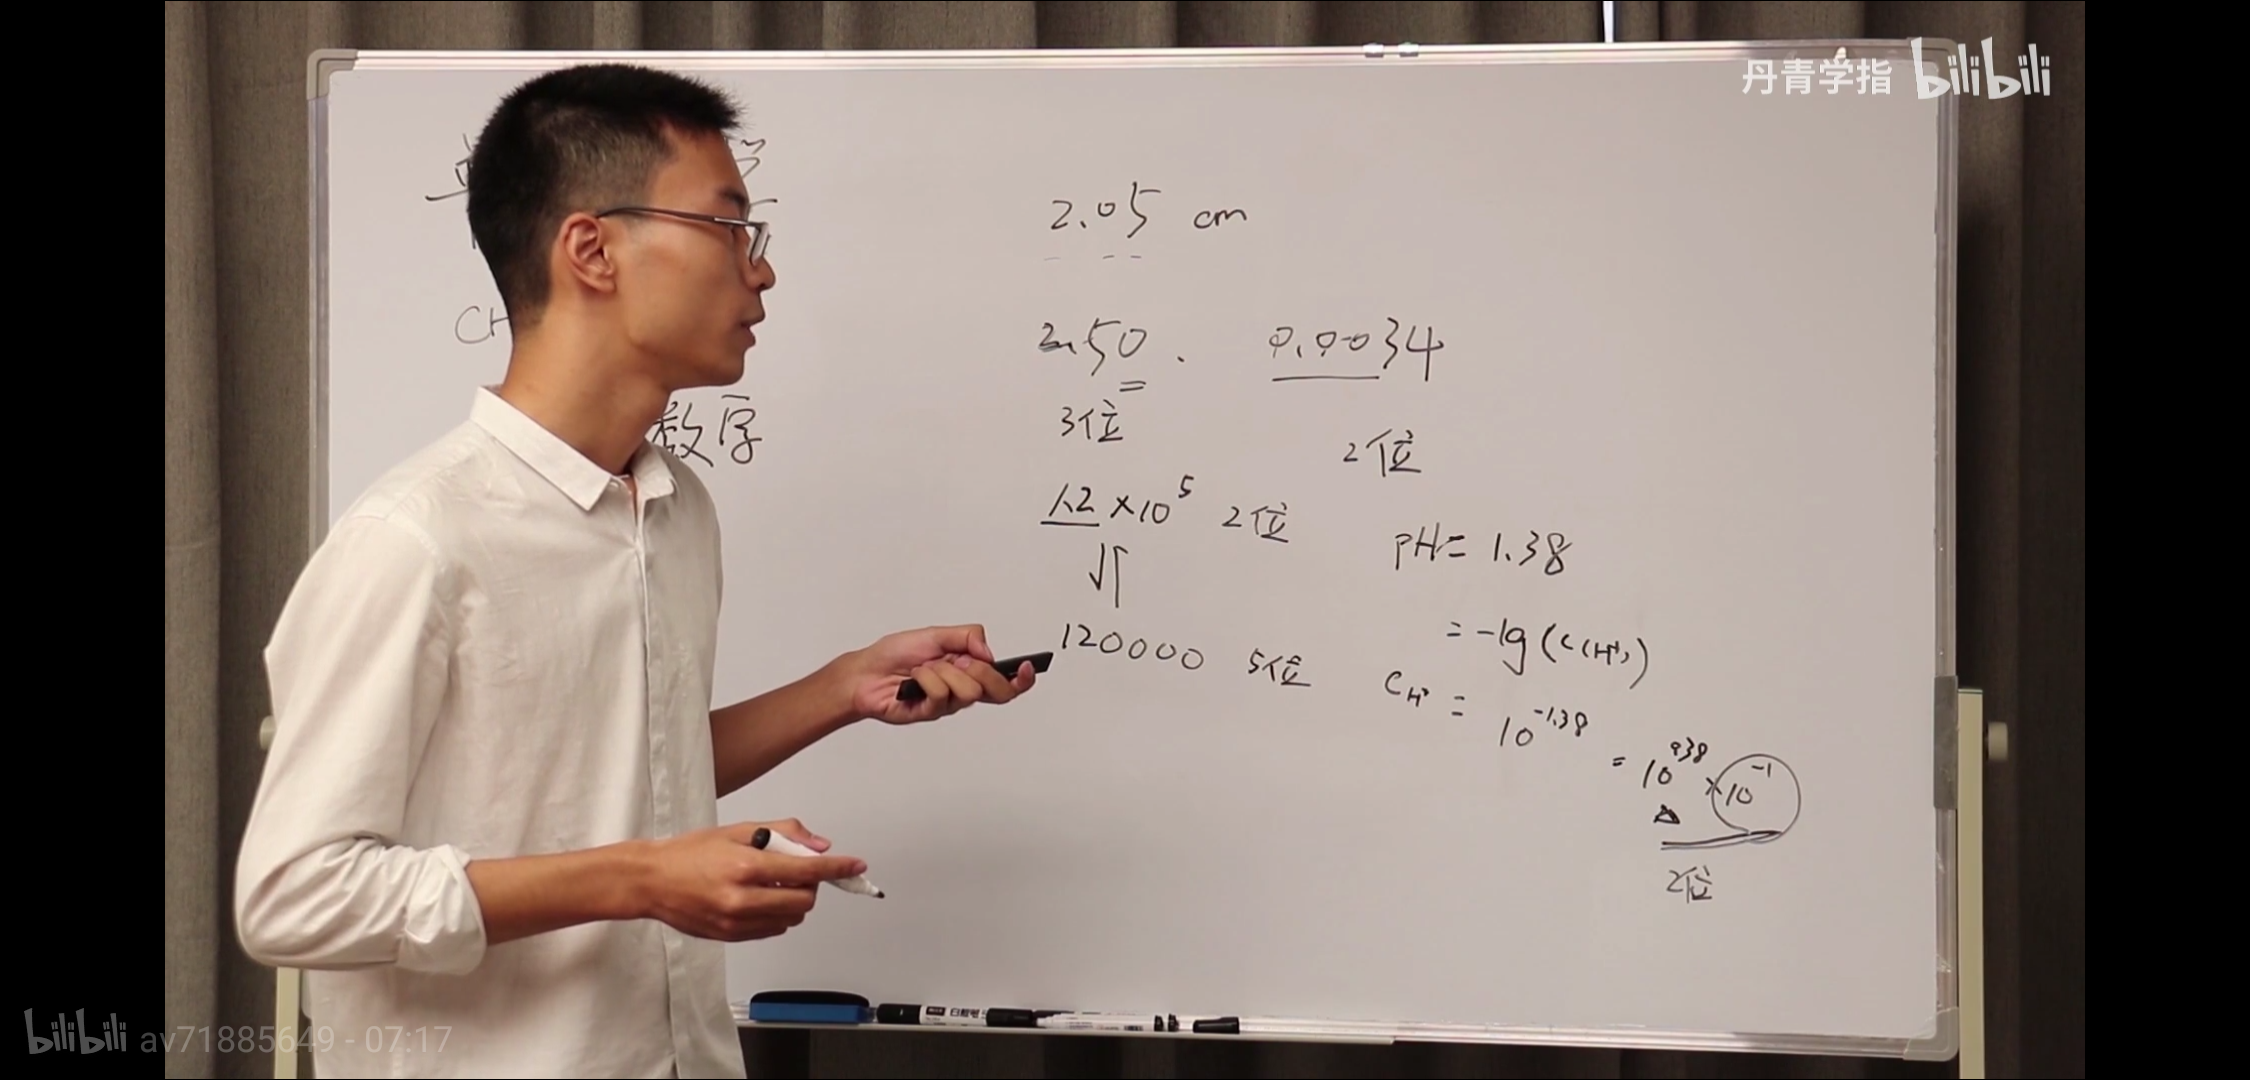 丹青学指 bilibili
2.05 cm
2.50. 0.0034
3位 2位
CH
数字
1.2×10⁵ 2位
120000 5位
pH= 1.38
= -lg(c(H⁺))
c_H⁺ = 10^-1.38 = 10^0.38 ×10^-1
2位
白板笔
bilibili av71885649 - 07:17